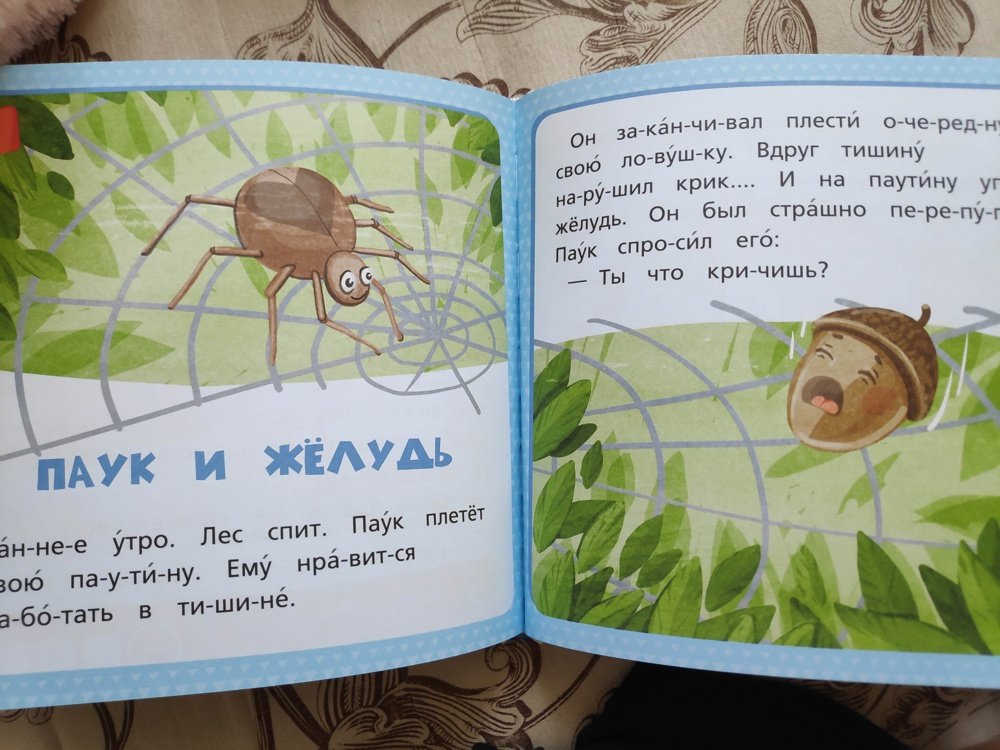 ПАУК И ЖЁЛУДЬ
у́тро. Лес спит. Пау́к плетёт
па-у-ти́-ну. Ему́ нра́-вит-ся
в ти-ши-не́.
Он за-ка́н-чи-вал плести́
свою́ ло-ву́ш-ку. Вдруг тишину́
на-ру́-шил крик.... И на паути́ну
жёлудь. Он был стра́шно
Пау́к спро-си́л его́:
— Ты что кри-чишь?